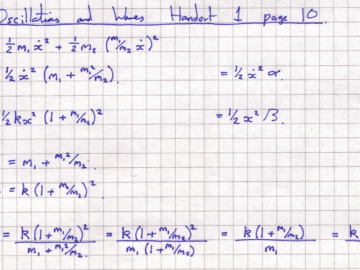 Oscillations and Waves Handout 1 page 10.
½ m₁ ẋ² + ½ m₂ (m₁/m₂ ẋ)²
½ ẋ² (m₁ + m₁²/m₂) = ½ ẋ² α.
½ k x² (1 + m₁/m₂)² = ½ x² β.
= m₁ + m₁²/m₂.
= k (1 + m₁/m₂)²
= k(1 + m₁/m₂)² / m₁ + m₁²/m₂. = k(1 + m₁/m₂)² / m₁(1 + m₁/m₂) = k(1 + m₁/m₂) / m₁ = k